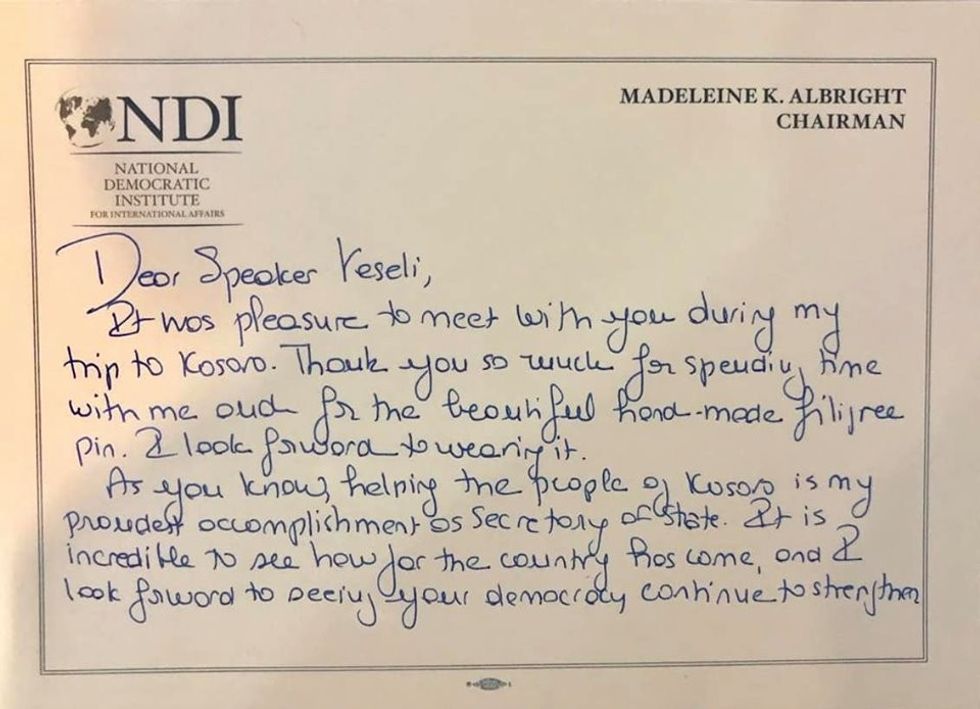 NDI
NATIONAL
DEMOCRATIC
INSTITUTE
FOR INTERNATIONAL AFFAIRS
MADELEINE K. ALBRIGHT
CHAIRMAN
Dear Speaker Veseli,
It was pleasure to meet with you during my
trip to Kosovo. Thank you so much for spending time
with me and for the beautiful hand-made filigree
pin. I look forward to wearing it.
As you know, helping the people of Kosovo is my
proudest accomplishment as Secretary of State. It is
incredible to see how far the country has come, and I
look forward to seeing your democracy continue to strengthen